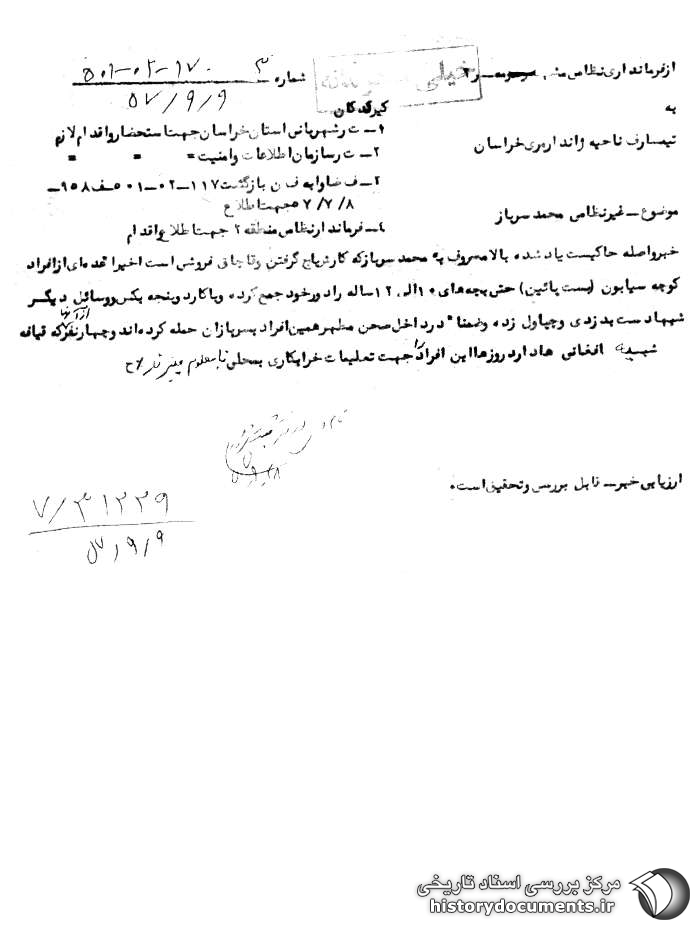 از فرمانداری نظامی
شماره ۳ ۱۷۰-۰۲-۵۰۱
۵۷/۹/۹
خیلی محرمانه
به
تیمسار ف ناحیه ژاندارمری خراسان
گیرندگان
۱ـ ت ر شهربانی استان خراسان جهت استحضار و اقدام لازم
۲ـ ت ر سازمان اطلاعات و امنیت = = =
۳ـ ف ضد اوابه ف ن بازگشت ۱۱۷-۰۲-۵۰۱ ف ۹۵۸ـ
۵۷/۷/۸ جهت اطلاع
۴ـ فرماندار نظامی منطقه ۲ جهت اطلاع و اقدام
موضوع ـ غیرنظامی محمد سرباز
خبر واصله حاکیست یاد شده بالا معروف به محمد سرباز که کارش باج گرفتن و قاچاق فروشی است اخیرا عده‌ای از افراد
کوچه سیابون (بست پائین) حتی بچه‌های ۱۰ الی ۱۲ ساله را دور خود جمع کرده و با کارد و پنجه بکس و وسائل دیگر
شبها دست بدزدی و چپاول زده و ضمنا" در داخل صحن مطهر همین افراد بسربازان حمله کرده‌اند و چهار نفر از آنها که قیافه
شبیه افغانی ها دارد روزها این افراد را جهت تعلیمات خرابکاری بمحلی نامعلوم میبرند ح
ارزیابی خبر ـ قابل بررسی و تحقیق است.
۷/۳۱۲۲۹
۹/۹
مرکز بررسی اسناد تاریخی
historydocuments.ir